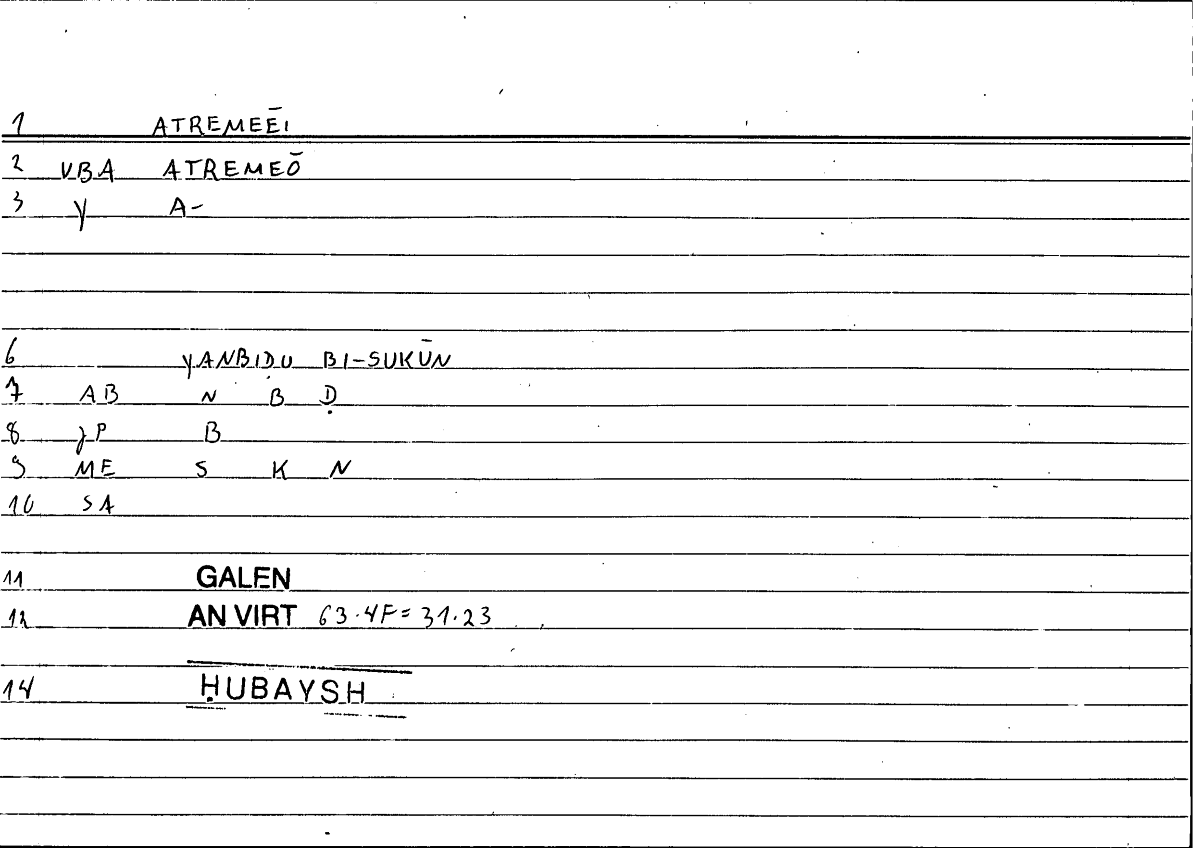 1 ATREMEĒI
2 VBA ATREMEŌ
3 Y A-
6 YANBIḌU BI-SUKŪN
7 AB N B Ḍ
8 JP B
9 ME S K N
10 SA
11 GALEN
12 AN VIRT 63.4F=31.23
14 ḤUBAYSH